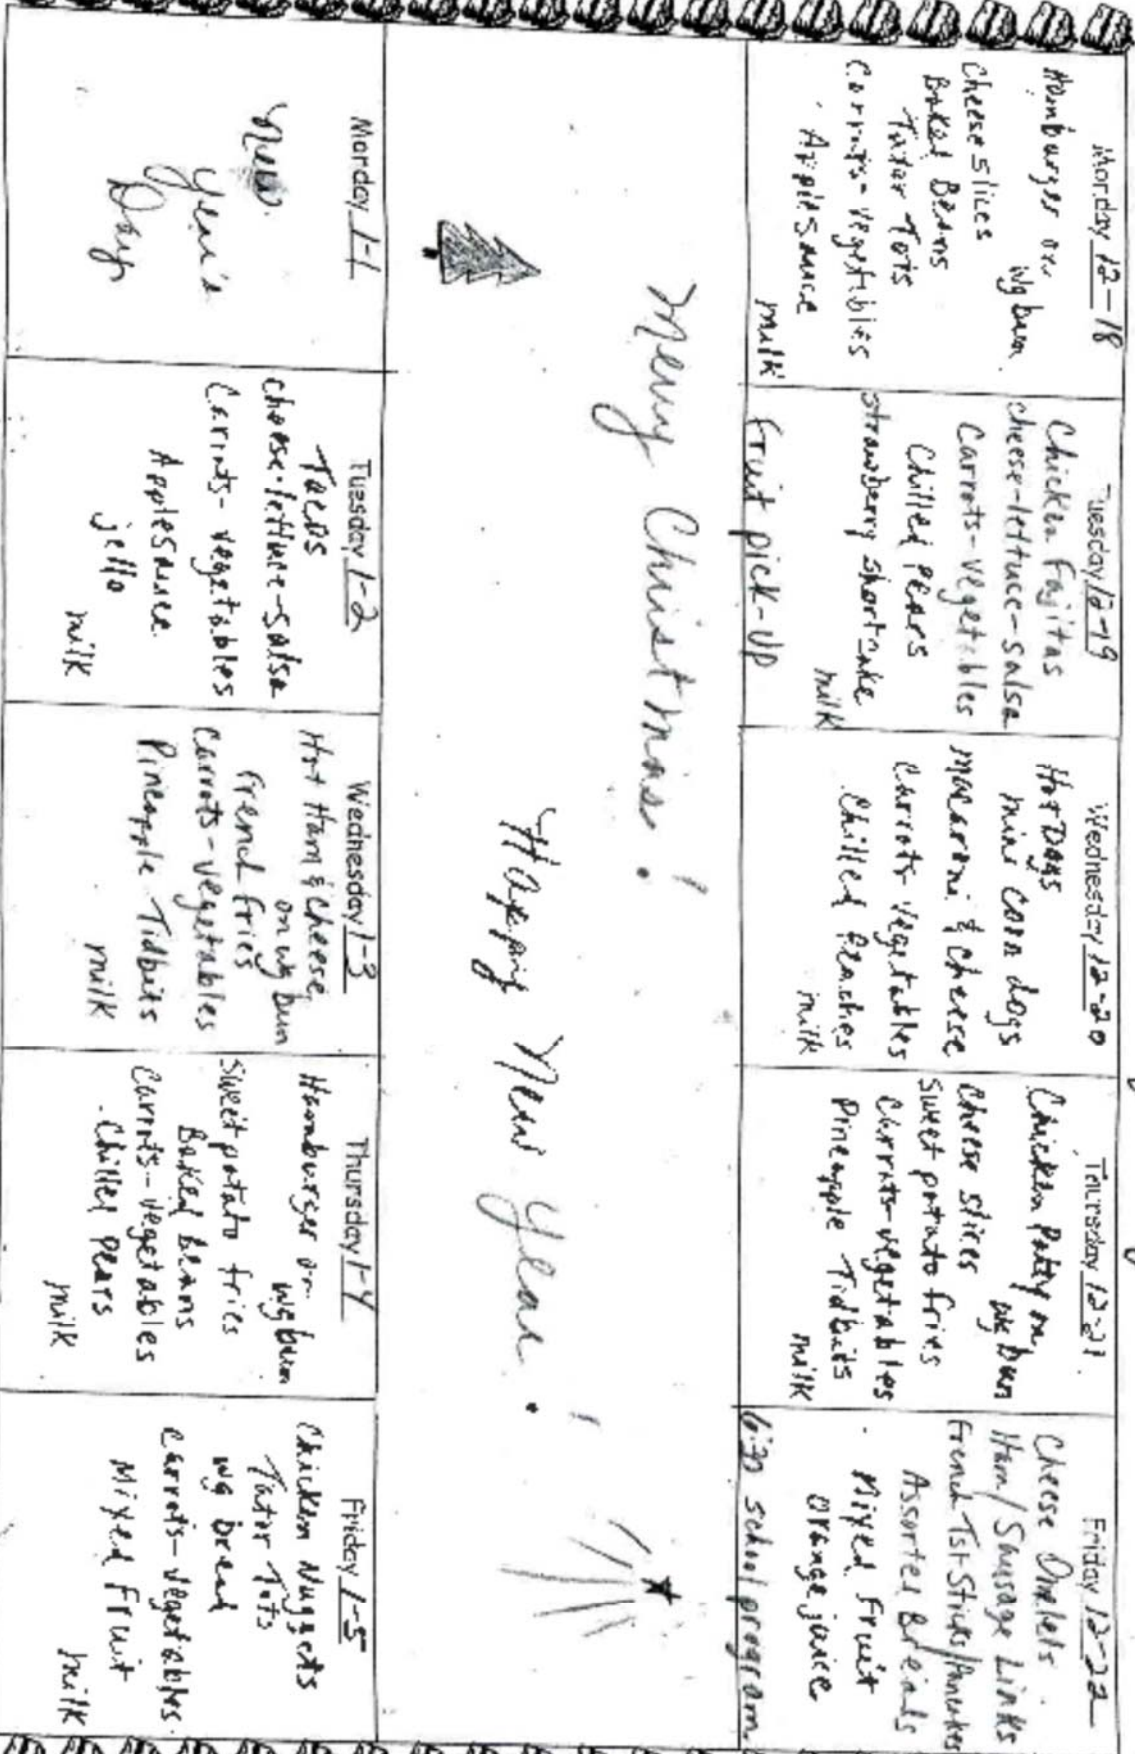 Monday 12-18
Hamburger on
wg bun
Cheese slices
Baked Beans
Tator Tots
Carrots-vegetables
Applesauce
milk
Tuesday 12-19
Chicken Fajitas
cheese-lettuce-salsa
Carrots-vegetables
Chilled Pears
strawberry shortcake
milk
fruit pick-up
Wednesday 12-20
Hot Dogs
mini corn dogs
macaroni & cheese
Carrots-vegetables
Chilled Peaches
milk
Thursday 12-21
Chicken Patty on
wg bun
Cheese slices
Sweet potato fries
Carrots-vegetables
Pineapple Tidbits
milk
Friday 12-22
Cheese Omelets
Ham/Sausage Links
French Tst Sticks/Pancakes
Assorted Breads
Mixed Fruit
orange juice
6:30 school program
Merry Christmas!
Happy New Year!
Monday 1-1
New
Year's
Day
Tuesday 1-2
Tacos
cheese-lettuce-salsa
Carrots-vegetables
Applesauce
jello
milk
Wednesday 1-3
Hot Ham & Cheese
on wg bun
French fries
Carrots-vegetables
Pineapple Tidbits
milk
Thursday 1-4
Hamburger on
wg bun
Sweet potato fries
Baked beans
Carrots-vegetables
Chilled pears
milk
Friday 1-5
Chicken Nuggets
Tator Tots
wg bread
Carrots-vegetables
Mixed Fruit
milk